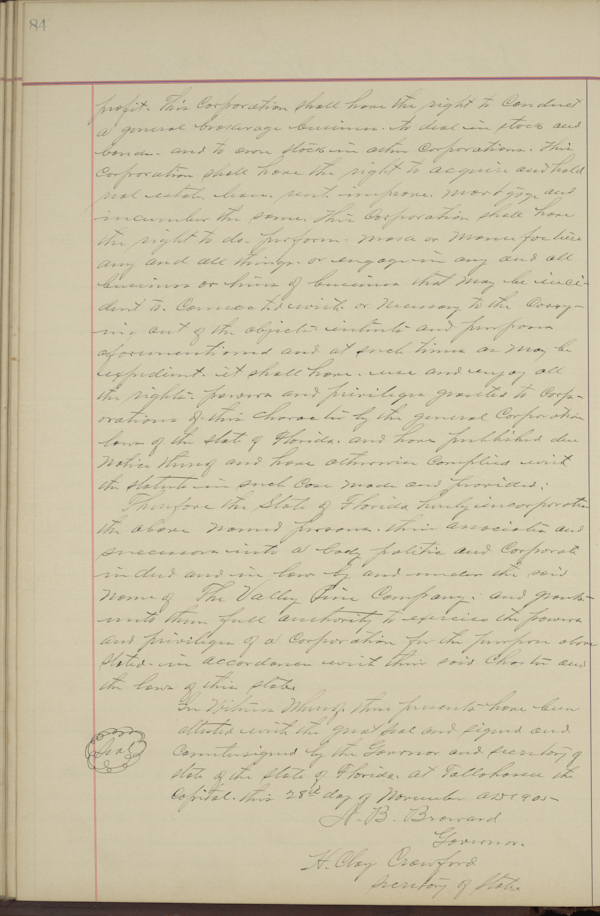 84
profit. This Corporation shall have the right to Conduct
a general brokerage business. to deal in stock and
bonds. and to own stock in other Corporations. This
Corporation shall have the right to acquire and hold
real estate, lease, rent. improve. mortgage and
incumber the same. This Corporation shall have
the right to do. perform. make or manufacture
any and all things. or engage in any and all
business or lines of business that may be inci-
dent to. Connected with. or necessary to the Carry-
ing out of the objects intents and purposes
aforementioned and at such times as may be
expedient. it shall have. use and enjoy all
the rights. powers and privileges granted to Corp-
orations of this character by the general Corporation
laws of the State of Florida. and have published due
notice thereof and have otherwise Complied with
the statute in such Case made and provided;
Therefore the State of Florida hereby incorporates
the above named persons. their associates and
successors into a body politic and Corporate
in deed and in law by and under the said
name of The Valley Pine Company; and grants
unto them full authority to exercise the powers
and privileges of a Corporation for the purpose above
stated. in accordance with their said Charter and
the laws of this state.
In Witness Whereof these presents have been
attested with the great seal and signed and
Seal
Countersigned by the Governor and Secretary of
State of the State of Florida. at Tallahassee the
Capital. this 28th day of November AD 1905-
N. B. Broward
Governor.
H. Clay Crawford
Secretary of State